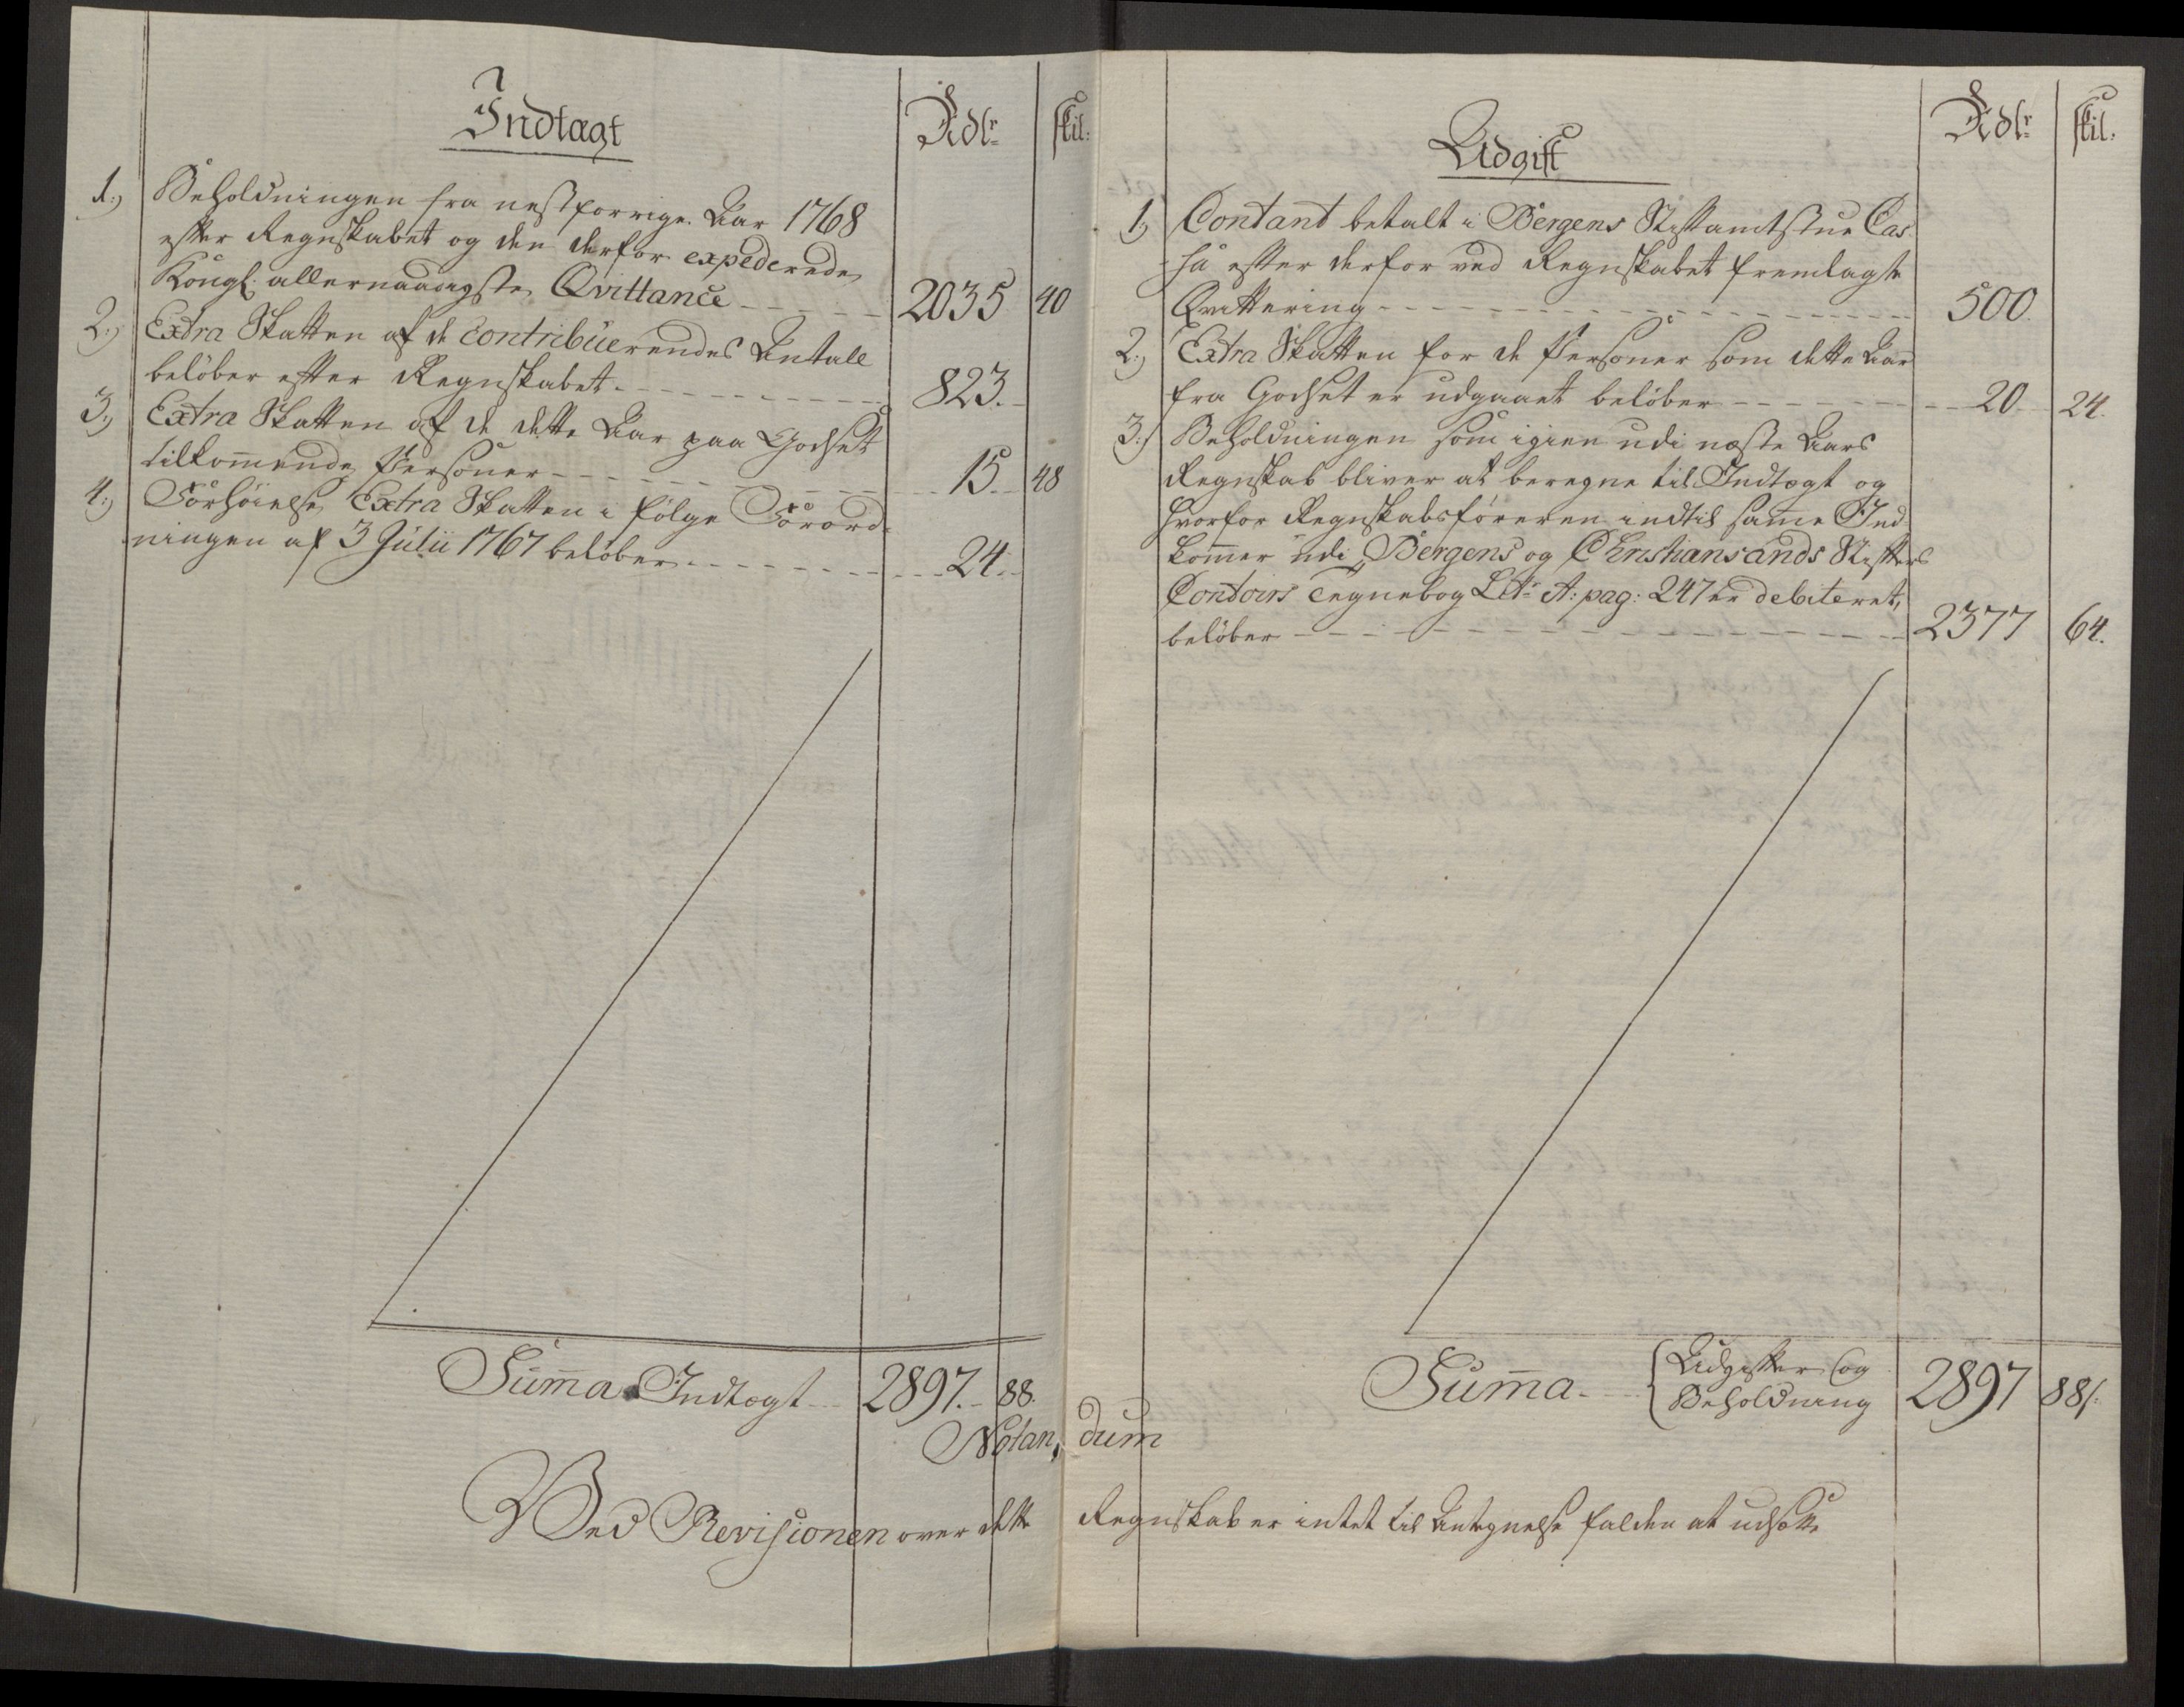 Indtægt
Rdlr
skil:
1.) Beholdningen fra nestforrige Aar 1768
efter Regnskabet og den derfor expederede
Kongl: allernaadigste Qvittance - - - 2035 40
2.) Extra Skatten af de contribuerendes Antall
beløber efter Regnskabet - - - 823.
3.) Extra Skatten af de dette Aar paa Godset
tilkom̄ende Personer - - - 15. 48
4.) Forhøielse Extra Skatten i følge Forord-
ningen af 3 Julii 1767 beløber - - - 24.
Sum̄a Indtægt 2897. 88.
Udgift
Rdlr
skil.
1.) Contant betalt i Bergens Stiftamtstue Cas-
sa efter derfor ved Regnskabet fremlagte
Qvittering - - - 500.
2.) Extra Skatten for de Personer som dette Aar
fra Godset er udgaaet beløber - - - 20 24.
3.) Beholdningen som igien udi næste Aars
Regnskab bliver at beregne til Indtægt og
hvorfor Regnskabsføreren indtil sam̄e Ind-
kom̄er udi Bergens og Christiansands Stifters
Contoirs Tegnebog Litr A: pag: 247 er debiteret,
beløber - - - 2377 64.
Sum̄a Udgifter og
Beholdning 2897 88/.
Notan, dum
Ved Revisionen over dette Regnskab er intet til Antegnelse falden at udsætte